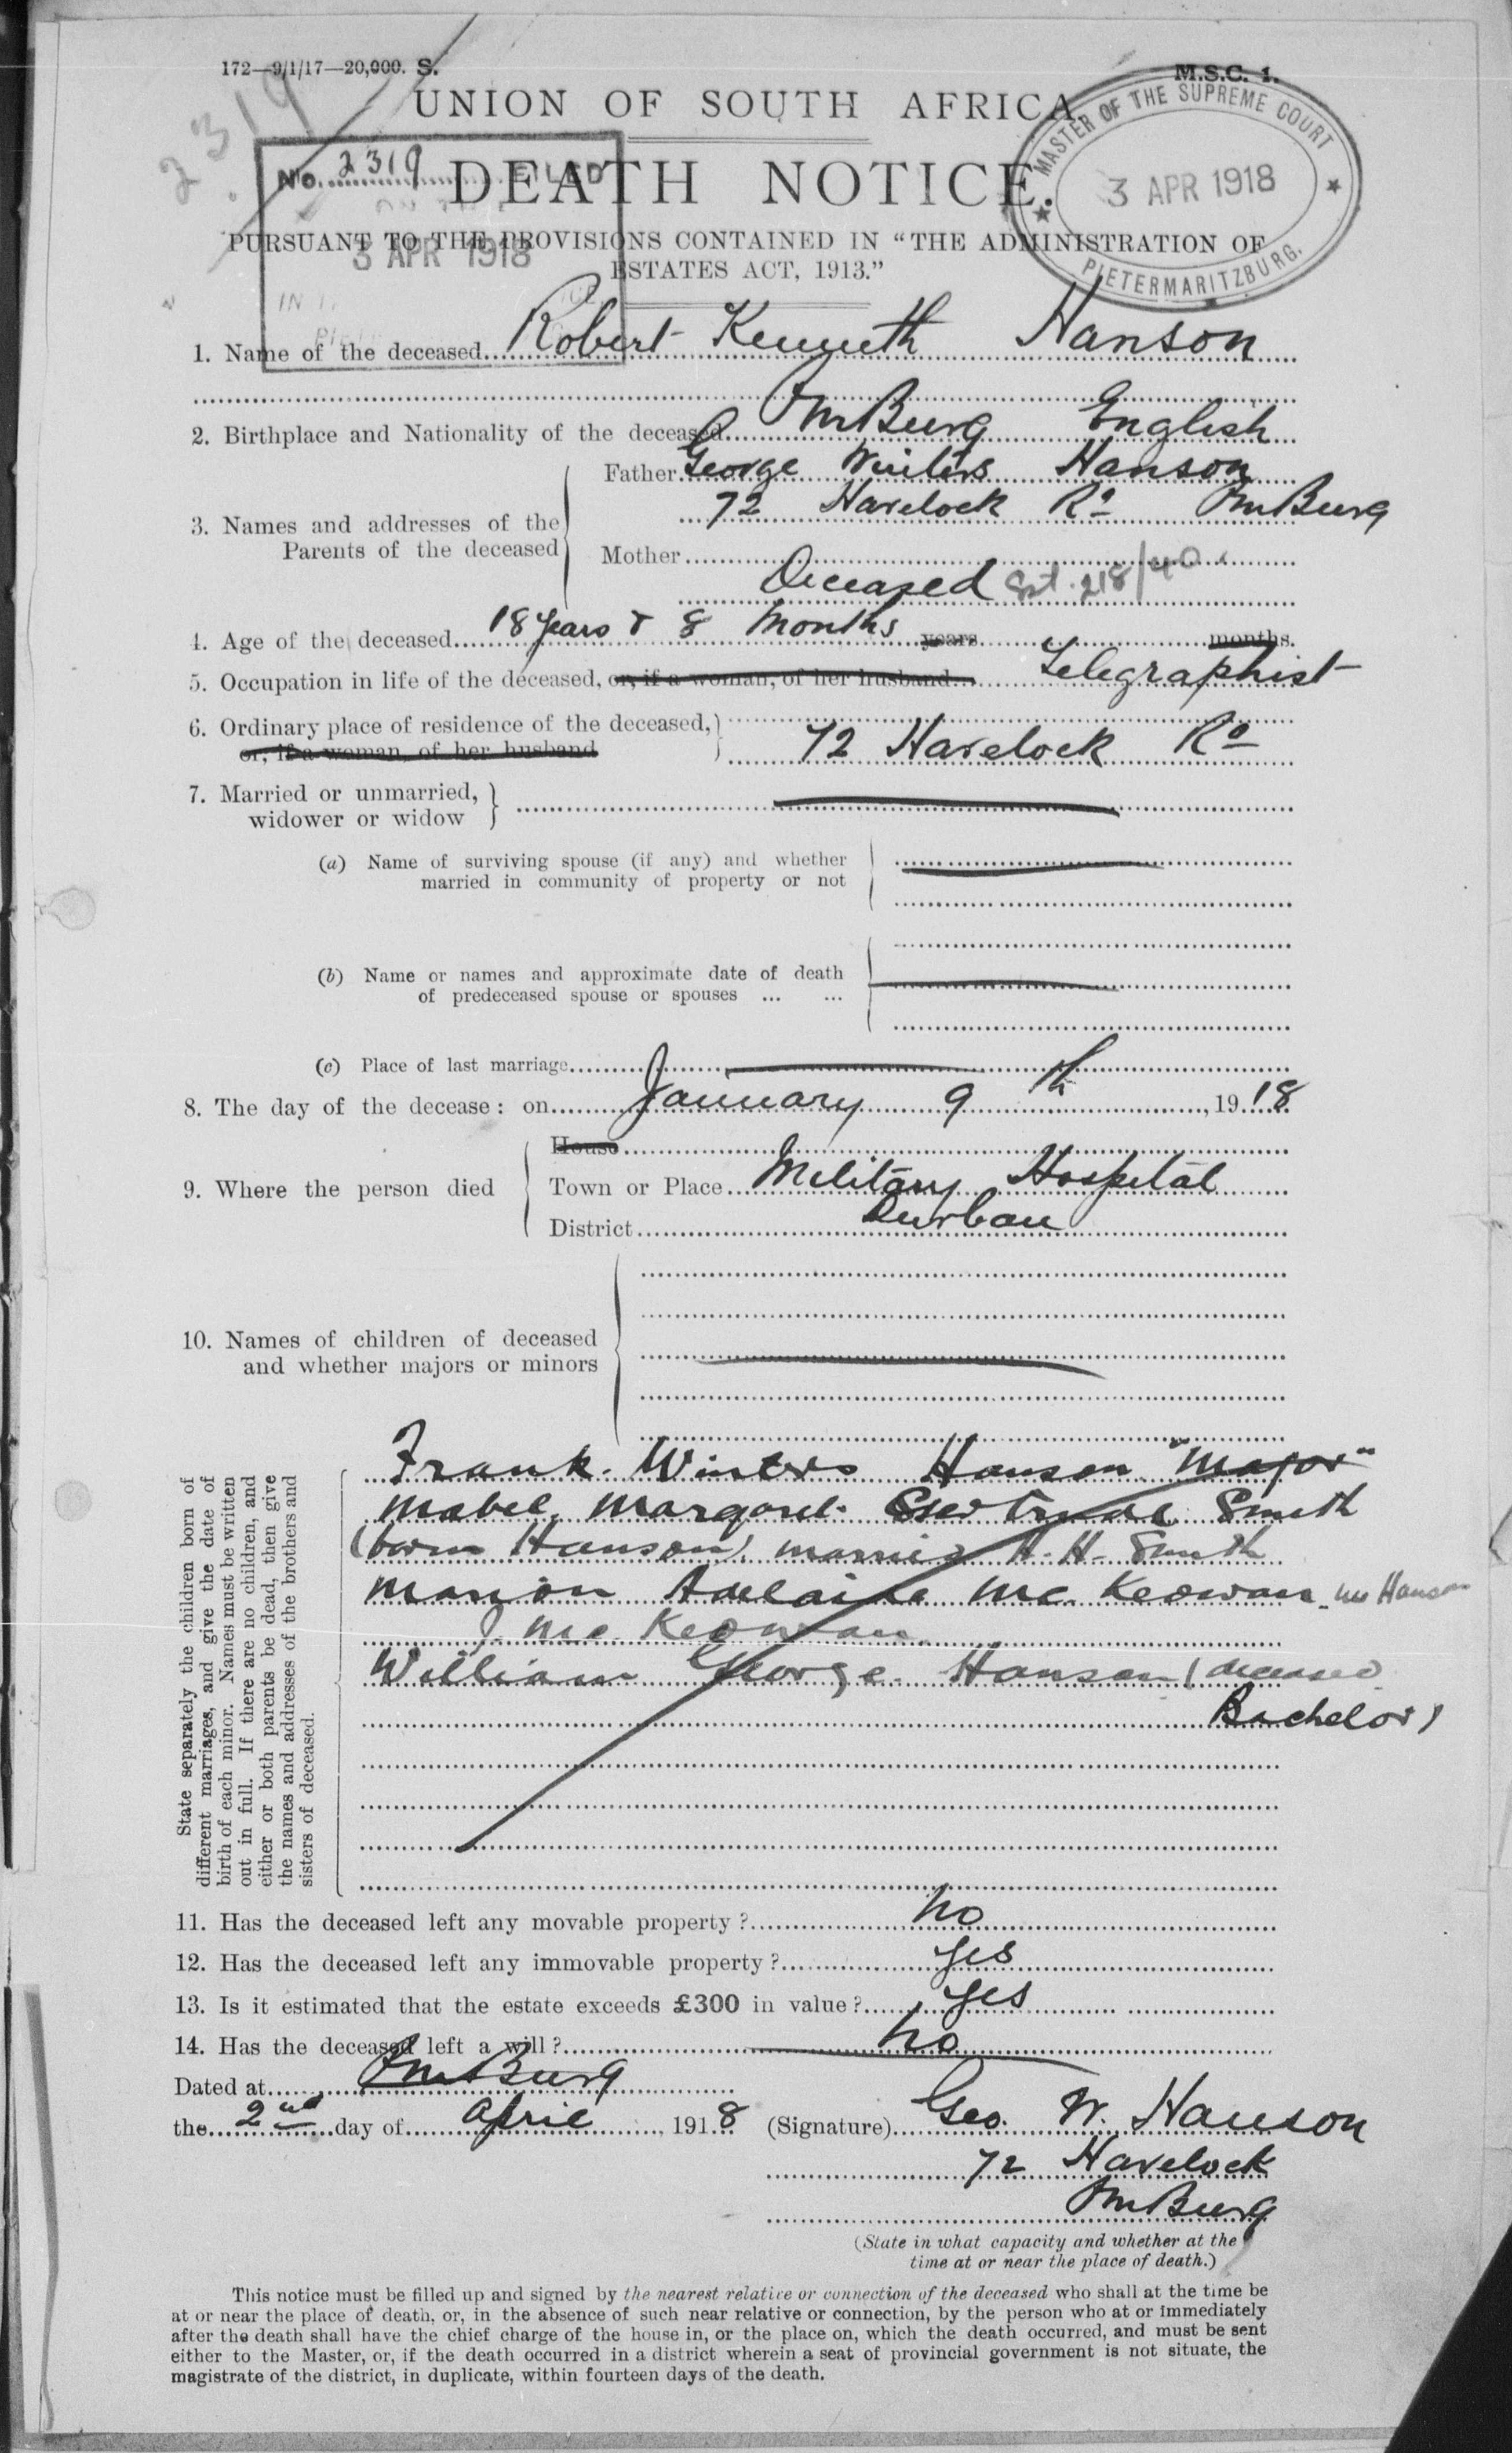 172—9/1/17—20,000. S.
M.S.C. 1.
2319
UNION OF SOUTH AFRICA.
MASTER OF THE SUPREME COURT
3 APR 1918
PIETERMARITZBURG.
No. 2319 FILED
3 APR 1918
DEATH NOTICE.
PURSUANT TO THE PROVISIONS CONTAINED IN “THE ADMINISTRATION OF
ESTATES ACT, 1913.”
1. Name of the deceased Robert Kenneth Hanson
2. Birthplace and Nationality of the deceased PmBurg English
Father George Winters Hanson
3. Names and addresses of the
Parents of the deceased
72 Havelock Rd PmBurg
Mother
Deceased Est. 218/40
4. Age of the deceased 18 years & 8 Months years months.
5. Occupation in life of the deceased, or, if a woman, of her husband Telegraphist
6. Ordinary place of residence of the deceased,
or, if a woman, of her husband 72 Havelock Rd
7. Married or unmarried,
widower or widow
(a) Name of surviving spouse (if any) and whether
married in community of property or not
(b) Name or names and approximate date of death
of predeceased spouse or spouses ... ...
(c) Place of last marriage
8. The day of the decease: on January 9th, 1918
House
9. Where the person died
Town or Place Military Hospital
District Durban
10. Names of children of deceased
and whether majors or minors
State separately the children born of
different marriages, and give the date of
birth of each minor. Names must be written
out in full. If there are no children, and
either or both parents be dead, then give
the names and addresses of the brothers and
sisters of deceased.
Frank Winters Hanson "Major"
Mabel Margaret Gertrude Smith
(born Hanson) married H. H. Smith
Marion Adelaide Mc Keowan née Hanson
J Mc Keowan
William George Hanson (deceased
Bachelor)
11. Has the deceased left any movable property? No
12. Has the deceased left any immovable property? Yes
13. Is it estimated that the estate exceeds £300 in value? Yes
14. Has the deceased left a will? No
Dated at PmBurg
the 2nd day of April, 1918 (Signature) Geo. W. Hanson
72 Havelock
PmBurg
(State in what capacity and whether at the
time at or near the place of death.)
This notice must be filled up and signed by the nearest relative or connection of the deceased who shall at the time be
at or near the place of death, or, in the absence of such near relative or connection, by the person who at or immediately
after the death shall have the chief charge of the house in, or the place on, which the death occurred, and must be sent
either to the Master, or, if the death occurred in a district wherein a seat of provincial government is not situate, the
magistrate of the district, in duplicate, within fourteen days of the death.